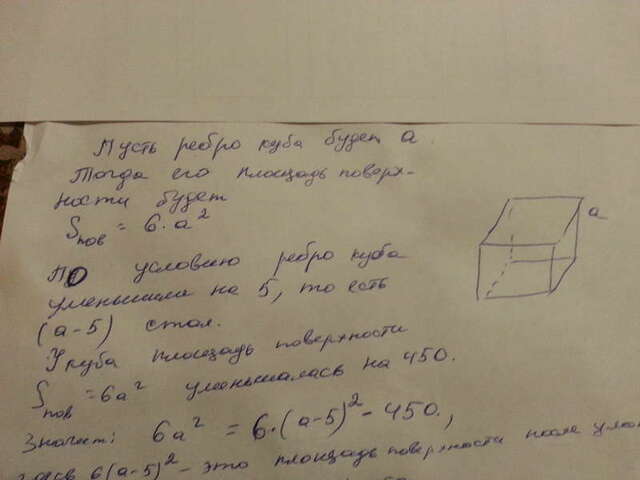 Пусть ребро куба будет a
Тогда его площадь поверх-
ности будет
Sпов = 6·a²
a
По условию ребро куба
уменьшили на 5, то есть
(a-5) стал.
У куба площадь поверхности
Sпов = 6a² уменьшалась на 450.
Значит: 6a² = 6·(a-5)² - 450,
6(a-5)² - это площадь поверхности после